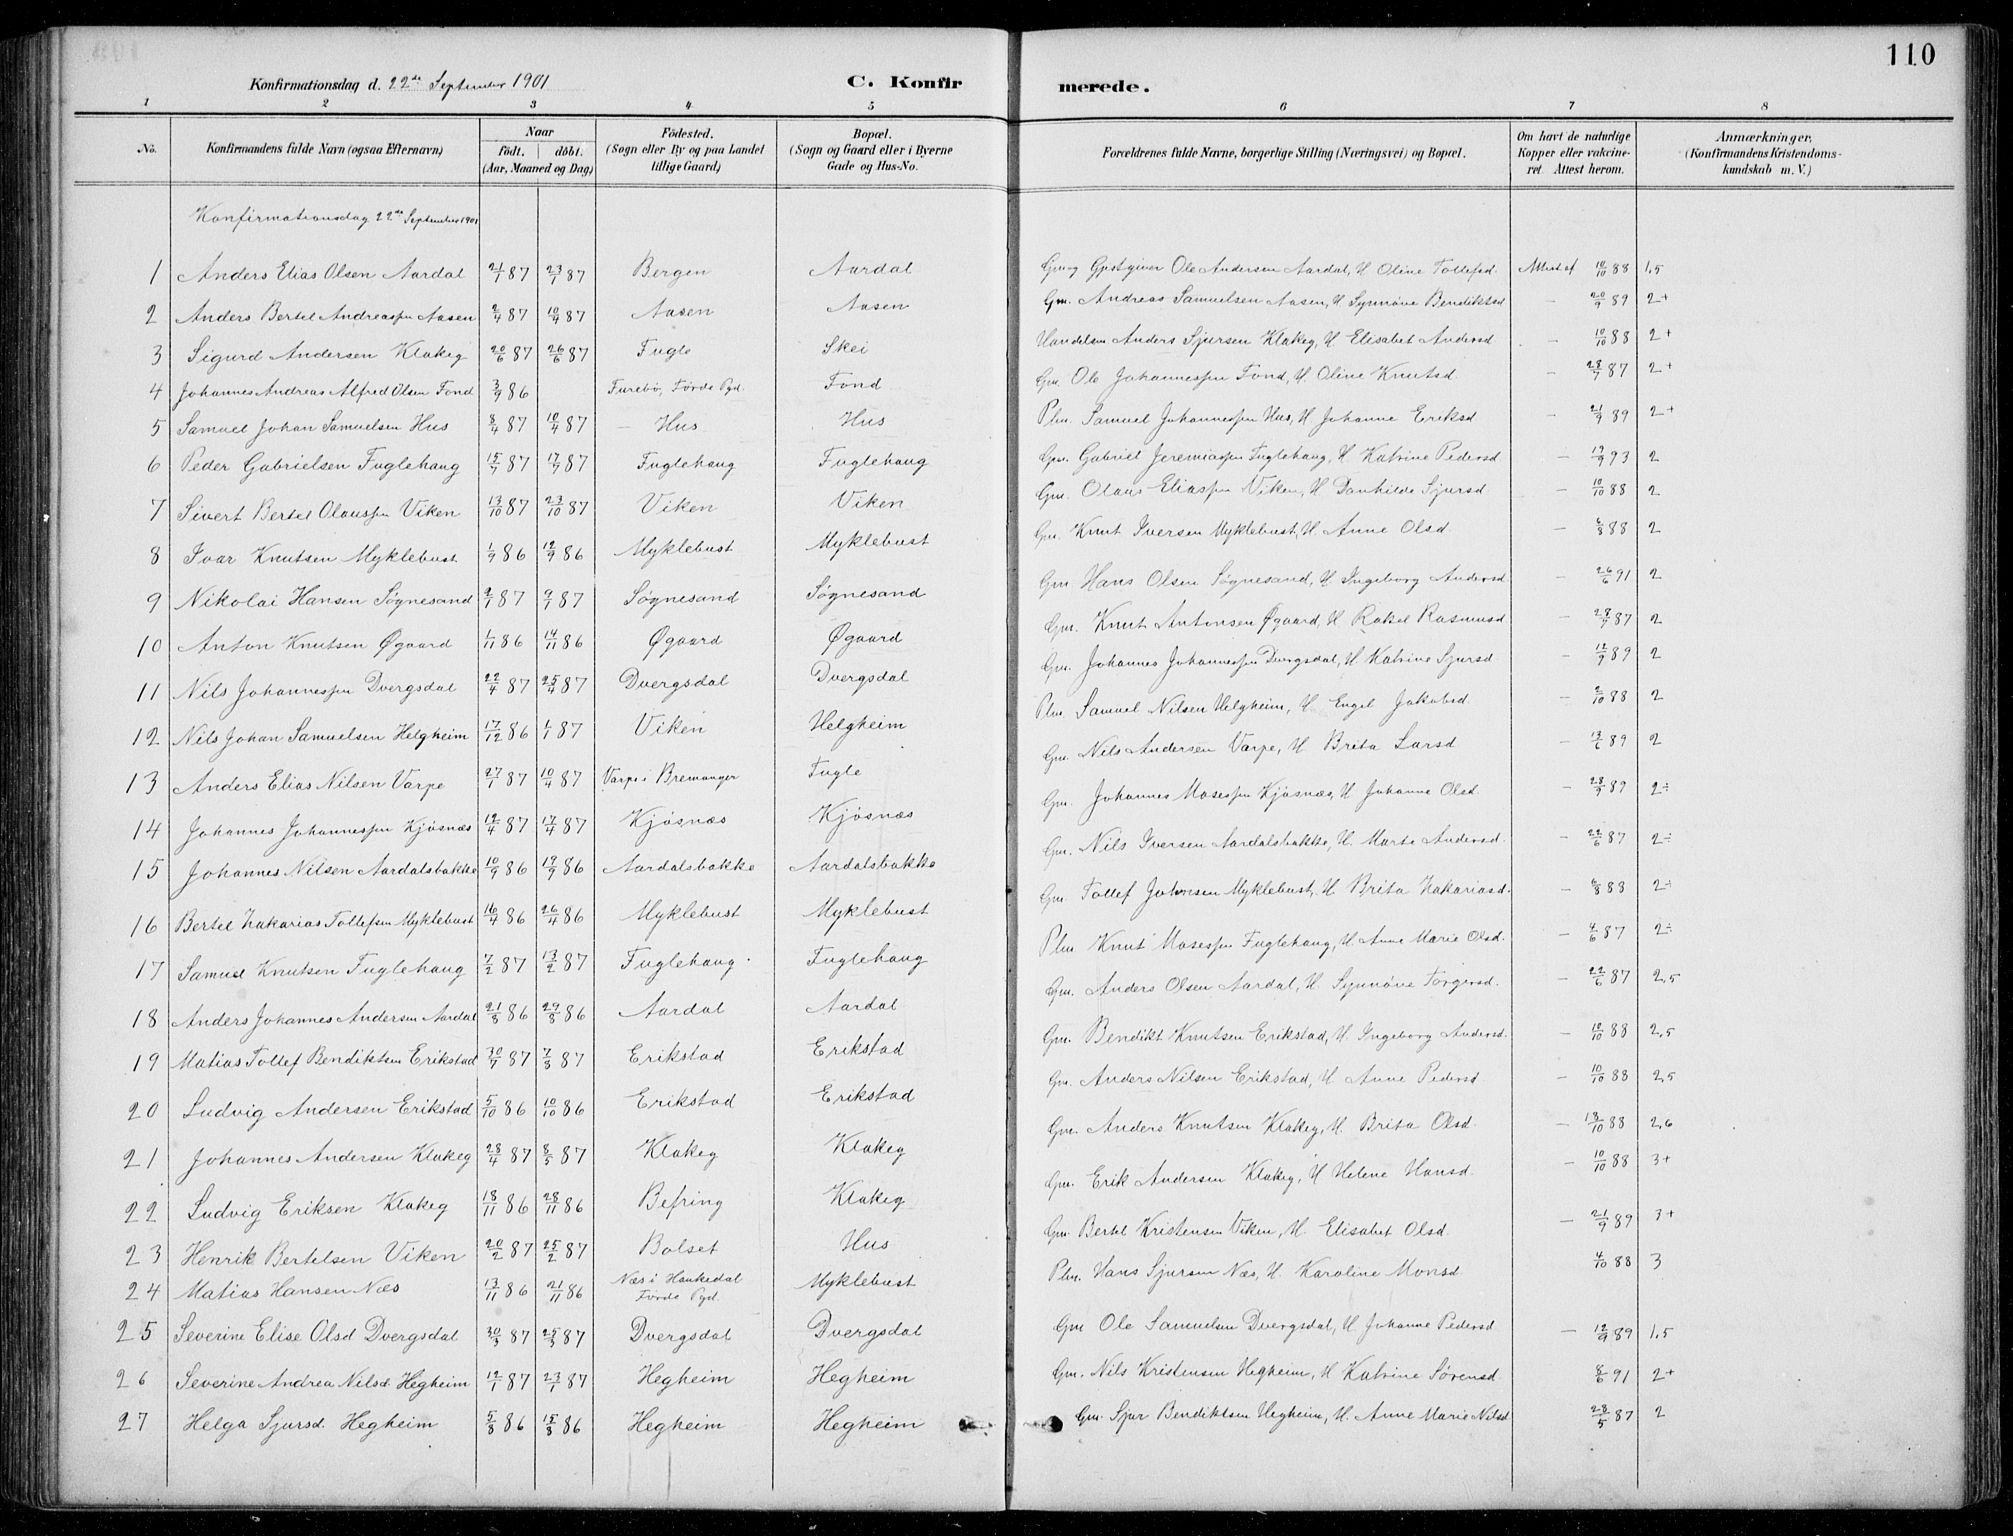 110
Konfirmationsdag d. 22de September 1901 C. Konfirmerede.
1 2 3 4 5 6 7 8
No. Konfirmandens fulde Navn (ogsaa Efternavn) Naar födt. döbt. (Aar, Maaned og Dag) Födested. (Sogn eller By og paa Landet tillige Gaard) Bopæl. (Sogn og Gaard eller i Byerne Gade og Hus-No. Forældrenes fulde Navne, borgerlige Stilling (Næringsvei) og Bopæl. Om havt de naturlige Kopper eller vakcineret. Attest herom. Anmærkninger. (Konfirmandens Kristendomskundskab m. V.)
Konfirmationsdag 22de September 1901
1 Anders Elias Olsen Aardal 21/1 87 23/1 87 Bergen Aardal Gm. og Gjestgiver Ole Andersen Aardal, H. Oline Tollefsd. Attest af 10/10 88 1,5
2 Anders Bertel Andreassen Aasen 2/4 87 10/4 87 Aasen Aasen Gm. Andreas Samuelsen Aasen, H. Synnöve Bendiktsd – 20/9 89 2+
3 Sigurd Andersen Klakeg 20/6 87 26/6 87 Fugle Skei Handelsm Anders Sjursen Klakeg, H. Elisabet Andersd – 10/10 88 2+
4 Johannes Andreas Alfred Olsen Fond 3/9 86 Furebö, Förde Pgd. Fond Gm. Ole Johannessen Fond, H. Oline Knutsd. – 28/7 87 2+
5 Samuel Johan Samuelsen Hus 8/4 87 10/4 87 – Hus Hus Plm. Samuel Johannessen Hus, H. Johanne Eriksd – 21/9 89 2+
6 Peder Gabrielsen Fuglehaug 15/7 87 17/7 87 Fuglehaug Fuglehaug Gm. Gabriel Jeremiassen Fuglehaug, H. Katrine Pedersd – 19/9 93 2
7 Sivert Bertel Olaussen Viken 13/10 87 23/10 87 Viken Viken Gm. Olaus Eliassen Viken, H. Danhilde Sjursd – 10/10 88 2
8 Ivar Knutsen Myklebust 1/9 86 12/9 86 Myklebust Myklebust Gm. Knut Iversen Myklebust, H. Anne Olsd. – 6/8 88 2
9 Nikolai Hansen Søgnesand 2/1 87 9/1 87 Søgnesand Søgnesand Gm. Hans Olsen Søgnesand, H. Ingeborg Andersd – 26/6 91 2
10 Anton Knutsen Øgaard 1/11 86 14/11 86 Øgaard Øgaard Gm. Knut Antonsen Øgaard, H. Rakel Rasmusd – 28/7 87 2
11 Nils Johannessen Dvergsdal 22/4 87 25/4 87 Dvergsdal Dvergsdal Gm. Johannes Johannessen Dvergsdal, H. Katrine Sjursd – 12/9 89 2
12 Nils Johan Samuelsen Helgheim 17/12 86 1/1 87 Viken Helgheim Plm. Samuel Nilsen Helgheim, H. Engel Jakobsd. – 2/10 88 2
13 Anders Elias Nilsen Varpe 27/7 87 10/4 87 Varpe i Bremanger Fugle Gm. Nils Andersen Varpe, H. Brita Larsd – 13/6 89 2
14 Johannes Johannessen Kjösnæs 12/4 87 17/4 87 Kjösnæs Kjösnæs Gm. Johannes Mosessen Kjösnæs, H. Johanne Olsd. – 28/9 89 2÷
15 Johannes Nilsen Aardalsbakke 10/9 86 19/9 86 Aardalsbakke Aardalsbakke Gm. Nils Iversen Aardalsbakke, H. Marta Andersd. – 22/6 87 2÷
16 Bertel Zakarias Tollefsen Myklebust 16/4 86 26/4 86 Myklebust Myklebust Gm. Tollef Johnsen Myklebust, H. Brita Zakariasd. – 6/8 88 2÷
17 Samuel Knutsen Fuglehaug 7/2 87 13/2 87 Fuglehaug Fuglehaug Plm. Knut Mosessen Fuglehaug, H. Anne Marie Olsd. – 4/6 87 2÷
18 Anders Johannes Andersen Aardal 21/8 86 29/8 86 Aardal Aardal Gm. Anders Olsen Aardal, H. Synnöve Torgersd. – 22/6 87 2,5
19 Matias Tollef Bendiktsen Erikstad 30/7 87 7/8 87 Erikstad Erikstad Gm. Bendikt Knutsen Erikstad, H. Ingeborg Andersd. – 10/10 88 2,5
20 Ludvig Andersen Erikstad 5/10 86 10/10 86 Erikstad Erikstad Gm. Anders Nilsen Erikstad, H. Anne Pedersd. – 10/10 88 2,5
21 Johannes Andersen Klakeg 28/4 87 8/5 87 Klakeg Klakeg Gm. Anders Knutsen Klakeg, H. Brita Olsd. – 18/10 88 2,6
22 Ludvig Eriksen Klakeg 18/11 86 28/11 86 Befring Klakeg Gm. Erik Andersen Klakeg, H. Helene Hansd. – 10/10 88 3+
23 Henrik Bertelsen Viken 20/2 87 25/2 87 Bolset Hus Gm. Bertel Kristensen Viken, H. Elisabet Olsd. – 21/9 89 3+
24 Matias Hansen Næs 13/11 86 21/11 86 Næs i Haukedal Förde Pgd. Myklebust Plm. Hans Sjursen Næs, H. Karoline Monsd. 4/10 88 3
25 Severine Elise Olsd Dvergsdal 30/3 87 25/3 87 Dvergsdal Dvergsdal Gm Ole Samuelsen Dvergsdal, H. Johanne Pedersd – 12/9 89 1,5
26 Severine Andrea Nilsd. Hegheim 12/1 87 23/1 87 Hegheim Hegheim Gm. Nils Kristensen Hegheim, H. Katrine Sörensd. 8/6 91 2+
27 Helga Sjursd. Hegheim 5/8 86 15/8 86 Hegheim Hegheim Gm. Sjur Bendiktsen Hegheim, H. Anne Marie Nilsd 28/5 87 2